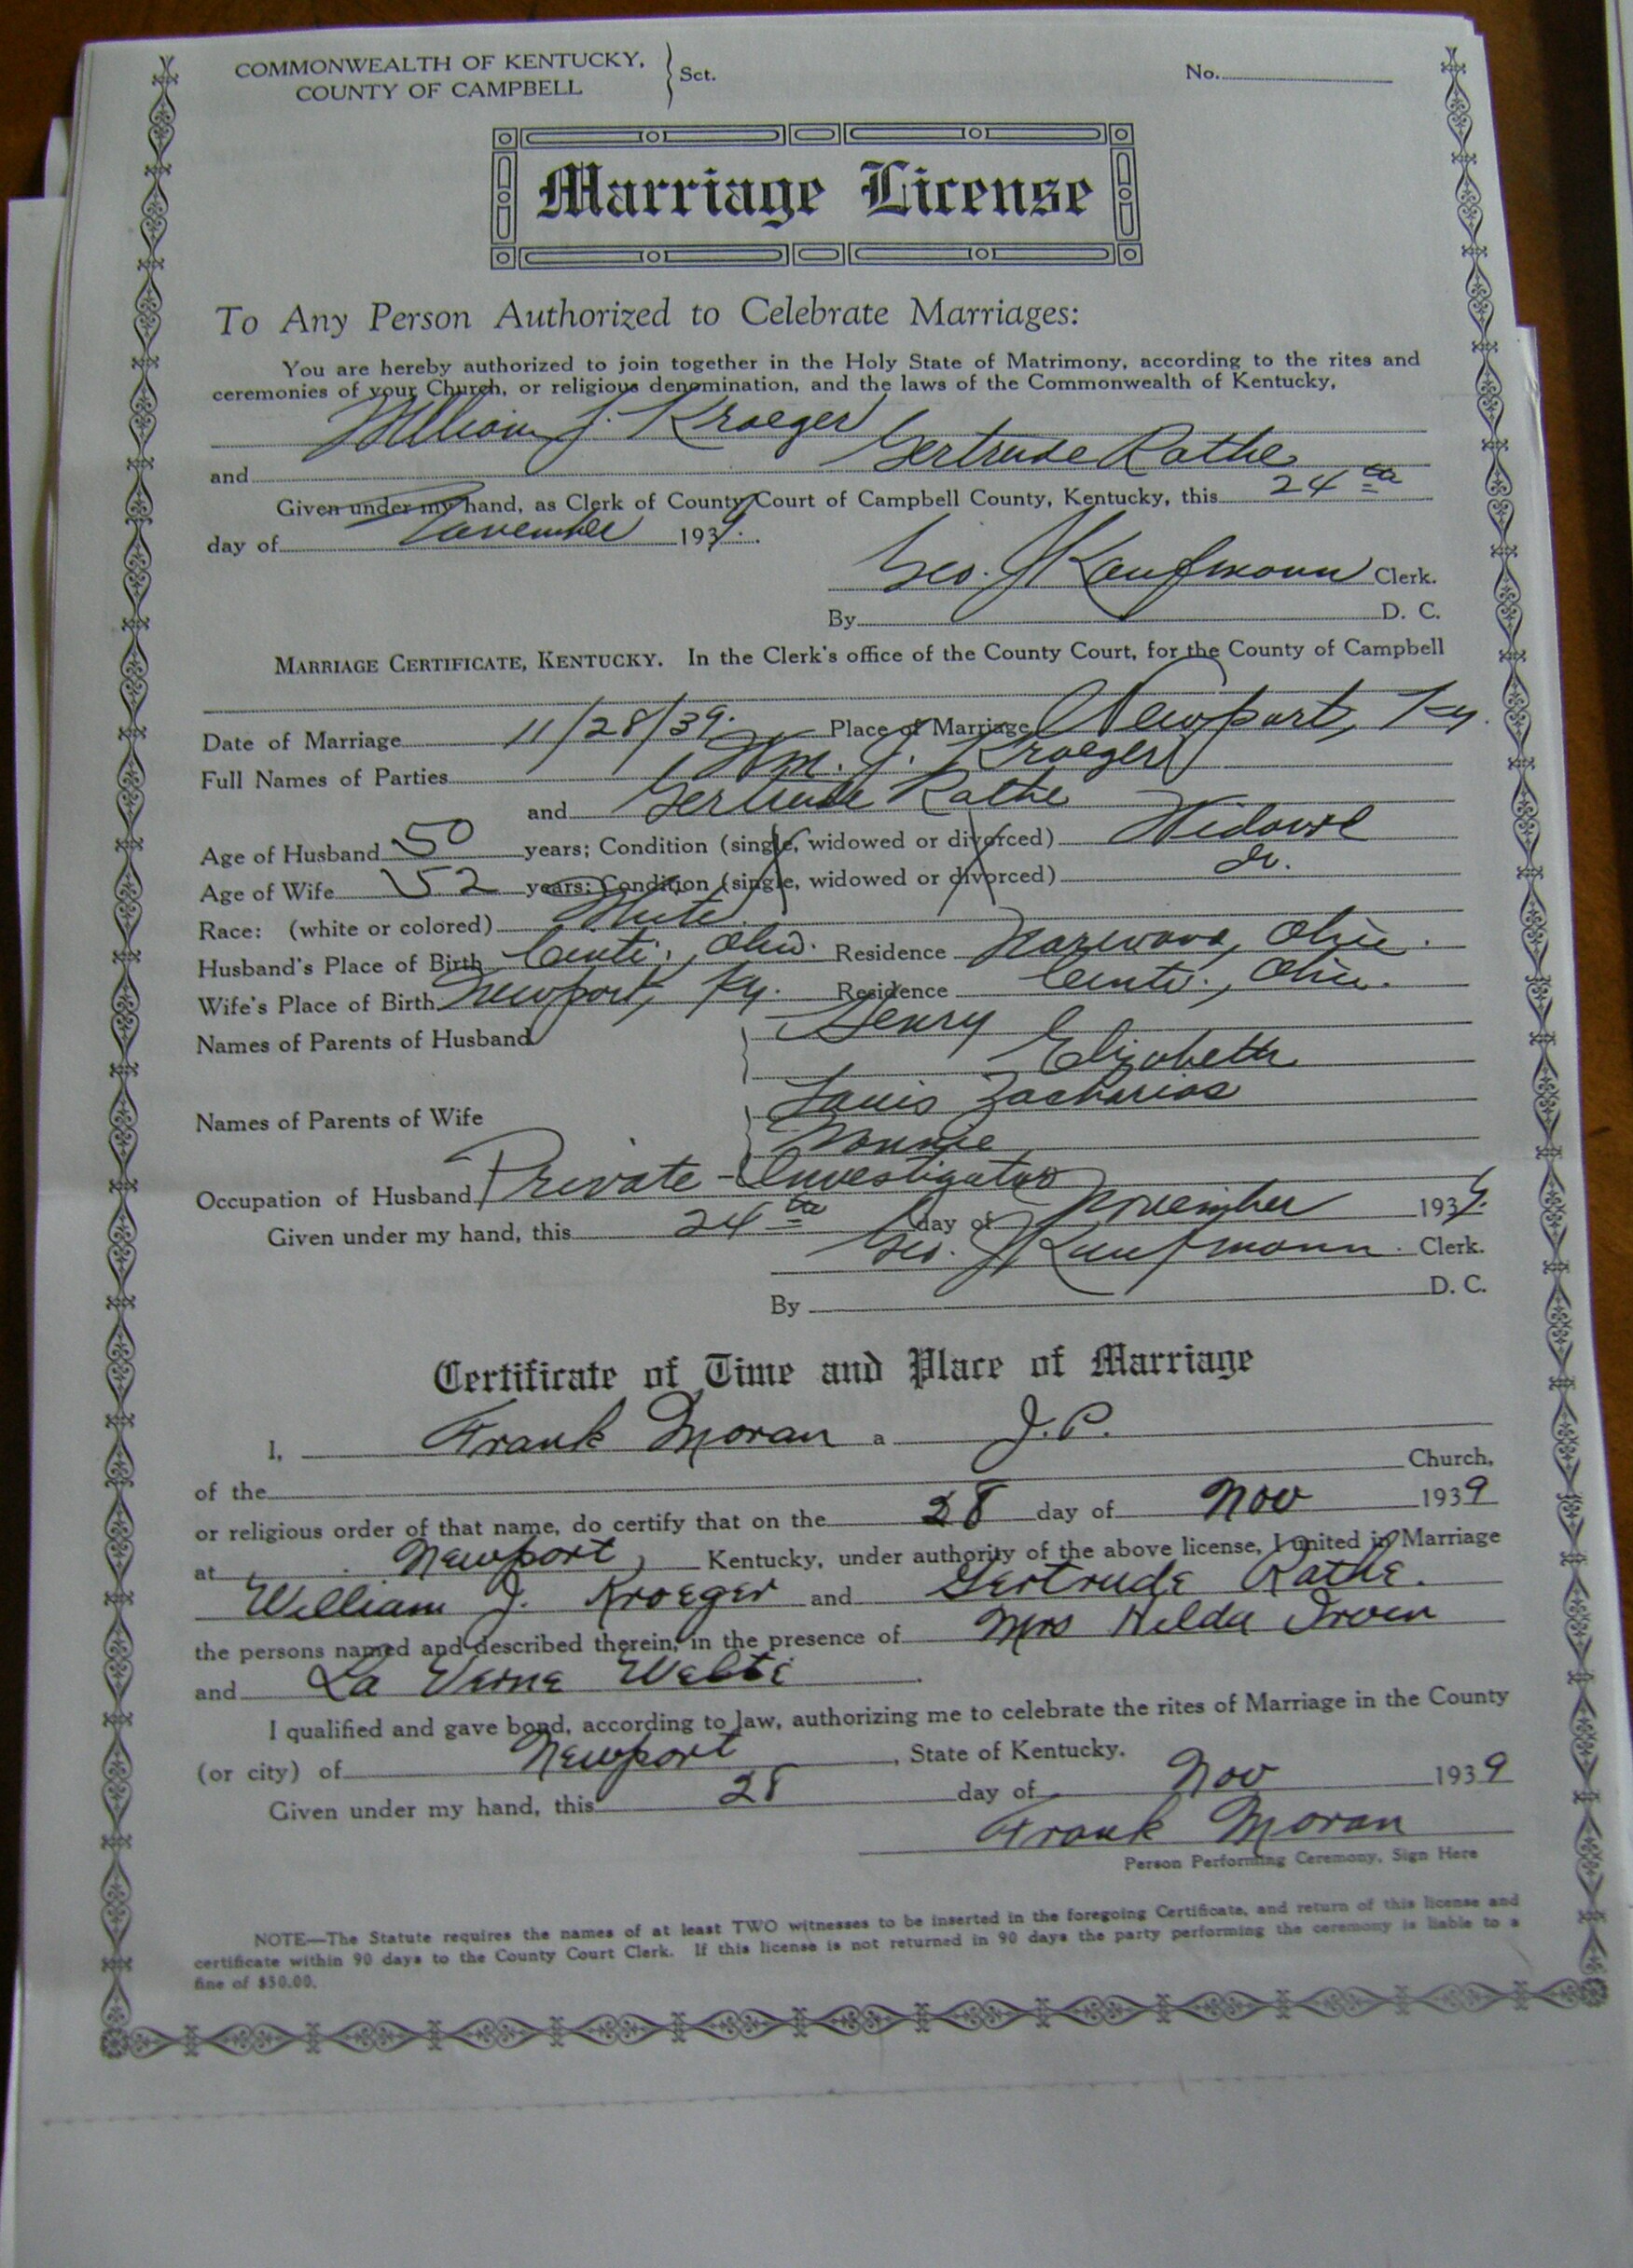 COMMONWEALTH OF KENTUCKY, } Sct. No.
COUNTY OF CAMPBELL
Marriage License
To Any Person Authorized to Celebrate Marriages:
You are hereby authorized to join together in the Holy State of Matrimony, according to the rites and
ceremonies of your Church, or religious denomination, and the laws of the Commonwealth of Kentucky,
William J. Kroeger
and Gertrude Rathe
Given under my hand, as Clerk of County Court of Campbell County, Kentucky, this 24th
day of November 1939.
Geo. J Kaufmann Clerk.
By D. C.
MARRIAGE CERTIFICATE, KENTUCKY. In the Clerk's office of the County Court, for the County of Campbell
Date of Marriage 11/28/39. Place of Marriage Newport, Ky.
Full Names of Parties Wm. J. Kroeger
and Gertrude Rathe
Age of Husband 50 years; Condition (single, widowed or divorced) Widowed
Age of Wife 52 years; Condition (single, widowed or divorced) do.
Race: (white or colored) White.
Husband's Place of Birth Cinti., Ohio. Residence Norwood, Ohio.
Wife's Place of Birth Newport, Ky. Residence Cinti., Ohio.
Names of Parents of Husband Henry
Elizabeth
Names of Parents of Wife Louis Zacharias
Occupation of Husband Private-Investigator
Given under my hand, this 24th day of November 1939.
Geo. J Kaufmann. Clerk.
By D. C.
Certificate of Time and Place of Marriage
I, Frank Moran a J.P.
of the Church,
or religious order of that name, do certify that on the 28 day of Nov 1939
at Newport, Kentucky, under authority of the above license, I united in Marriage
William J. Kroeger and Gertrude Rathe.
the persons named and described therein, in the presence of Mrs Hilda Irven
and La Verne Welti.
I qualified and gave bond, according to law, authorizing me to celebrate the rites of Marriage in the County
(or city) of Newport, State of Kentucky.
Given under my hand, this 28 day of Nov 1939
Frank Moran
Person Performing Ceremony, Sign Here
NOTE—The Statute requires the names of at least TWO witnesses to be inserted in the foregoing Certificate, and return of this license and
certificate within 90 days to the County Court Clerk. If this license is not returned in 90 days the party performing the ceremony is liable to a
fine of $50.00.